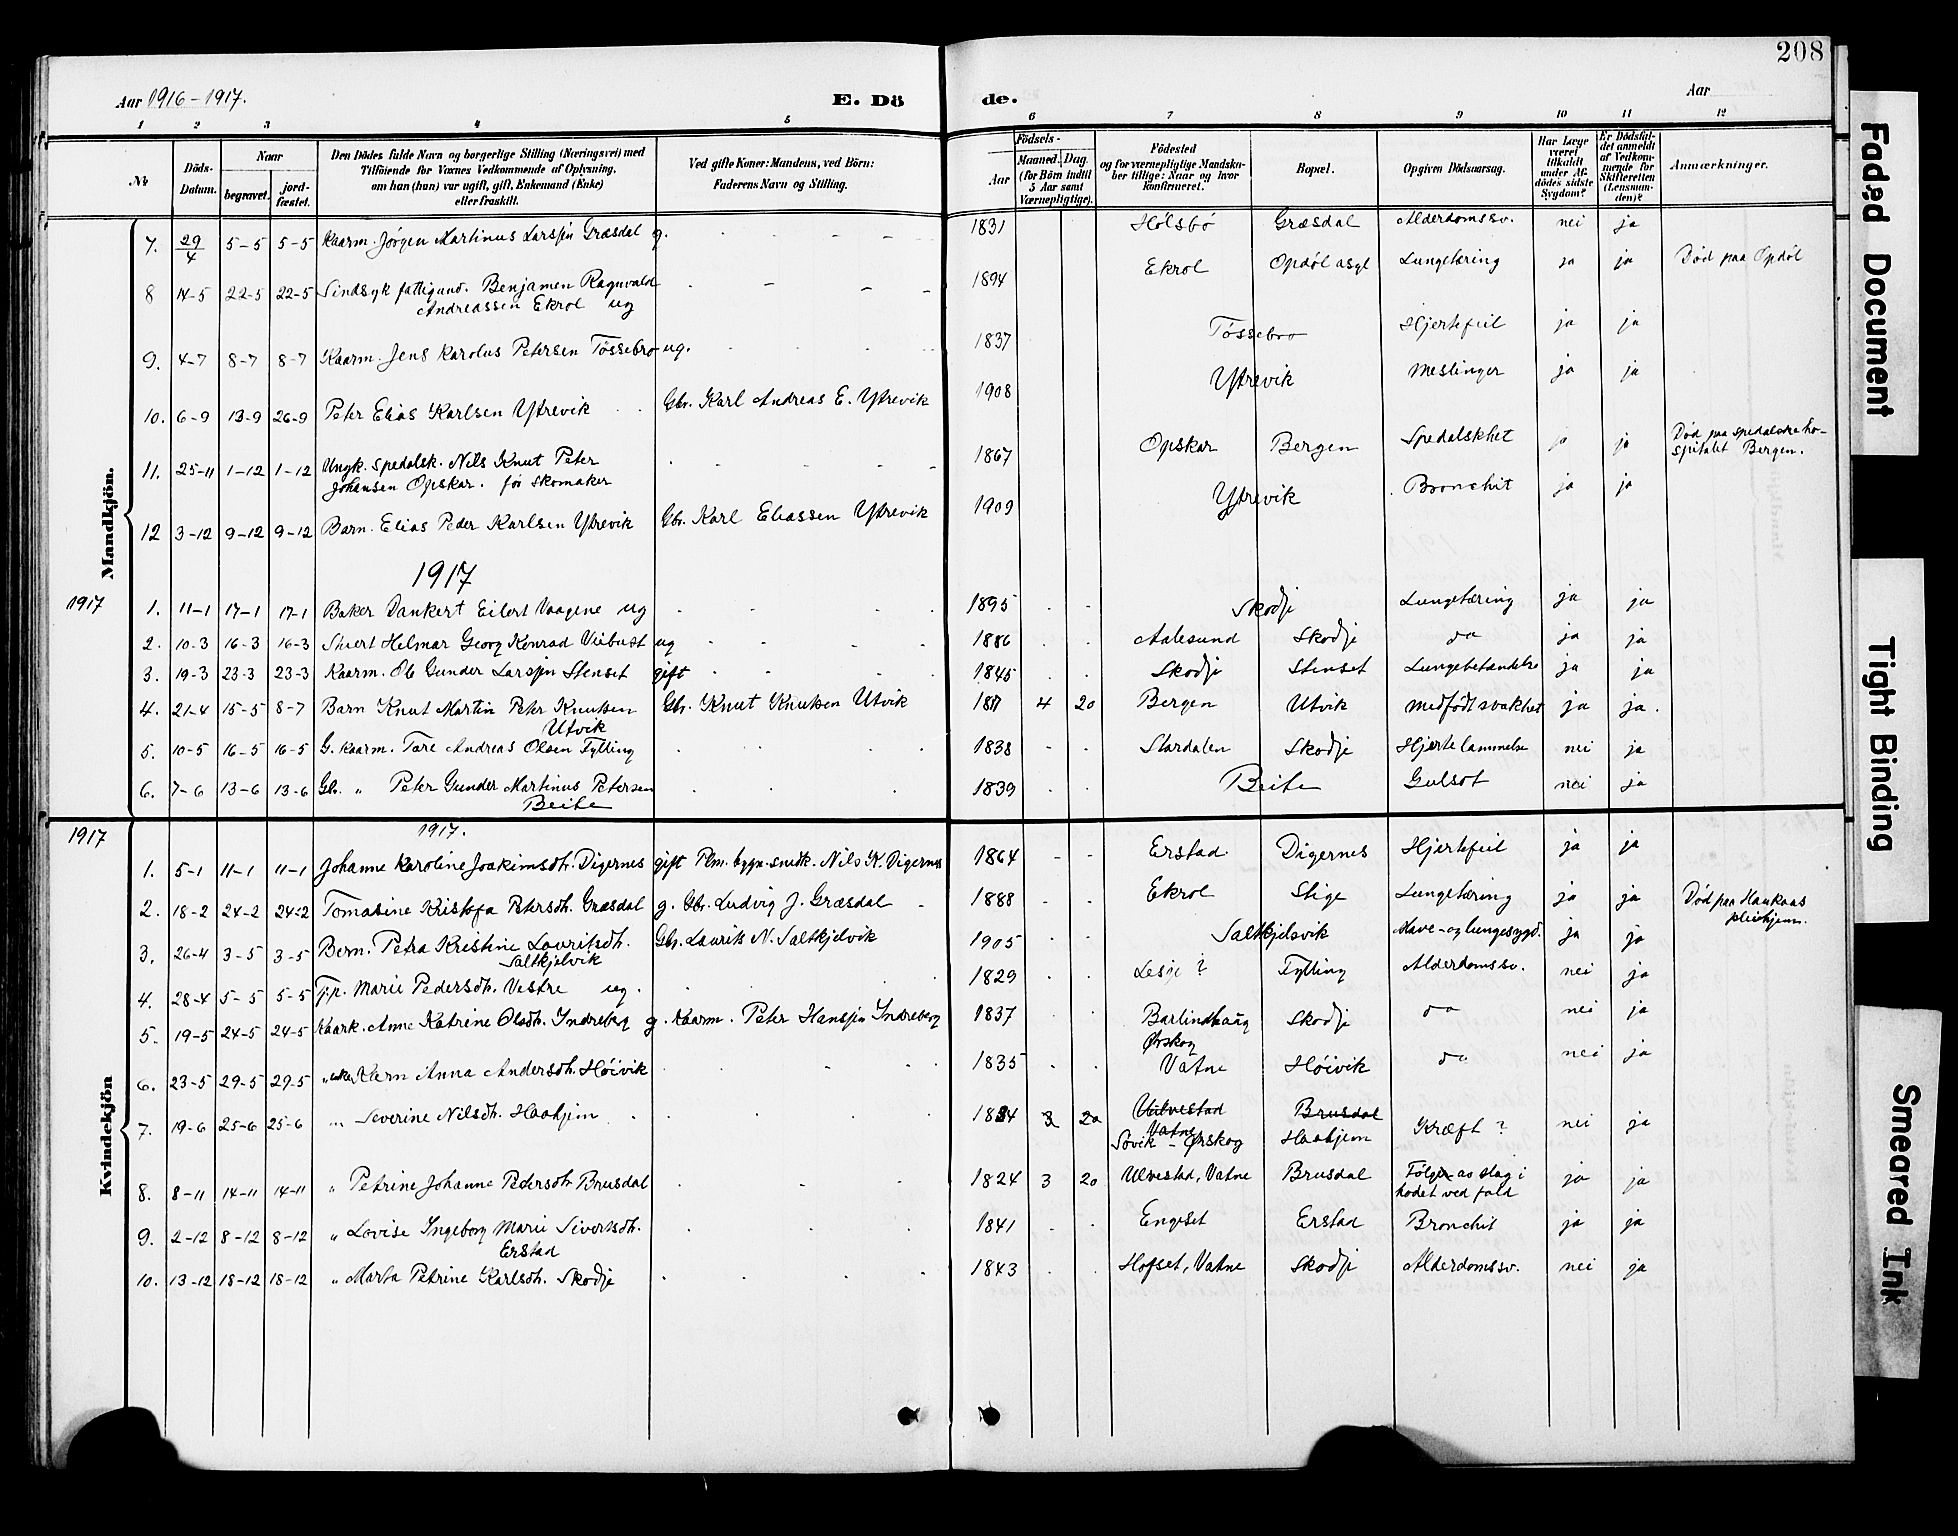 208
Aar 1916-1917. E. Dö de. Aar
1 2 3 4 5 6 7 8 9 10 11 12
No Döds-Datum. Naar begravet. jord-fæstet. Den Dödes fulde Navn og borgerlige Stilling (Næringsvei) med Tilföiende for Voxnes Vedkommende af Oplysning, om han (hun) var ugift, gift, Enkemand (Enke) eller fraskilt. Ved gifte Koner: Mandens, ved Börn: Faderens Navn og Stilling. Födsels- Aar Maaned. Dag. (for Börn indtil 5 Aar samt Værnepligtige). Födested og for værnepligtige Mandskaber tillige: Naar og hvor konfirmeret. Bopæl. Opgiven Dödsaarsag. Har Læge været tilkaldt under Afdödes sidste Sygdom? Er Dödsfaldet anmeldt af Vedkommende for Skifteretten (Lensmanden)? Anmærkninger.
Mandkjön.
7. 29/4 5-5 5-5 Kaarm. Jörgen Martinus Larssen Græsdal g. 1831 Holsbö Græsdal Alderdomssv. nei ja
8 14-5 22-5 22-5 Sindsyk fattigund. Benjamen Ragnvald 1894 Ekrol Opdöl asyl Lungetæring ja ja Död paa Opdöl
Andreassen Ekrol ug
9. 4-7 8-7 8-7 Kaarm. Jens Karolus Petersen Tössebro ug. 1837 Tössebro Hjertefeil ja ja
10. 6-9 13-9 26-9 Peter Elias Karlsen Ytrevik Gbr. Karl Andreas E. Ytrevik 1908 Ytrevik Meslinger ja ja
11. 25-11 1-12 1-12 Ungk. spedalsk. Nils Knut Peter 1867 Opskar Bergen Spedalskhet ja ja Död paa spedalske ho-
Johansen Opskar. för skomaker spitalet Bergen.
12 3-12 9-12 9-12 Barn. Elias Peder Karlsen Ytrevik Gbr. Karl Eliassen Ytrevik 1909 Ytrevik Bronchit ja ja
1917
1917 1. 11-1 17-1 17-1 Baker Dankert Eilert Vaagene ug 1895 Skodje Lungetæring ja ja
2. 10-3 16-3 16-3 Helmar Georg Konrad Viebust ug 1886 Aalesund Skodje do ja ja
3. 19-3 23-3 23-3 Kaarm. Ole Gunder Larssen Stenset gift 1845 Skodje Stenset Lungebetændelse ja ja
4. 21-4 15-5 8-7 Barn Knut Martin Peter Knutsen Gbr. Knut Knutsen Utvik 4 20 Bergen Utvik medfödt svakhet ja ja.
Utvik
5. 10-5 16-5 16-5 G. kaarm. Tore Andreas Olsen Fylling 1838 Stordalen Skodje Hjertelammelse nei ja
6. 7-6 13-6 13-6 Gbr. " Peter Gunder Martinus Petersen 1839 Beite Gulsot nei ja
Beite
Kvindekjön
1917 1917.
1. 5-1 11-1 11-1 Johanne Karoline Joakimsdtr. Digernes gift Plm. bygn. snedk. Nils K. Digernes 1864 Erstad Digernes Hjertefeil ja ja
2. 18-2 24-2 24-2 Tomasine Kristofa Petersdtr. Græsdal g. Gbr. Ludvig J. Græsdal 1888 Ekrol Stige Lungetæring ja ja Död paa Haukaas
pleiehjem.
3. 26-4 3-5 3-5 Barn. Petra Kristine Lauritsdtr. Gbr. Laurits N. Saltkjelvik 1905 Saltkjelsvik Mave- og lungesygd. ja ja
Saltkjelvik
4. 28-4 5-5 5-5 Marie Pedersdtr. Vestre ug. 1829 Lesje? Fylling Alderdomssv. nei ja
5. 19-5 24-5 24-5 Kaark. Anne Katrine Olsdtr. Indreberg g. Kaarm. Peter Hanssen Indreberg 1837 Barlindhaug Skodje do nei ja
Ørskog
6. 23-5 29-5 29-5 " Karn Anna Andersdtr. Höivik 1835 Vatne Höivik do nei ja
7. 19-6 25-6 25-6 " Severine Nilsdtr. Haahjem 3 20 Ulvestad Brusdal
Vatne
Sövik - Ørskog Haahjem Kræft? nei ja
8. 8-11 14-11 14-11 " Petrine Johanne Pedersdtr. Brusdal 1824 3 20 Ulvestad, Vatne Brusdal Fölger av slag i ja ja
hodet ved fald
9. 2-12 8-12 8-12 " Lovise Ingeborg Marie Sivertsdtr. 1841 Engeset Erstad Bronchit ja ja
Erstad
10. 13-12 18-12 18-12 " Marta Petrine Karlsdtr. Skodje 1843 Hofset, Vatne Skodje Alderdomssv. nei ja
Faded Document
Tight Binding
Smeared Ink